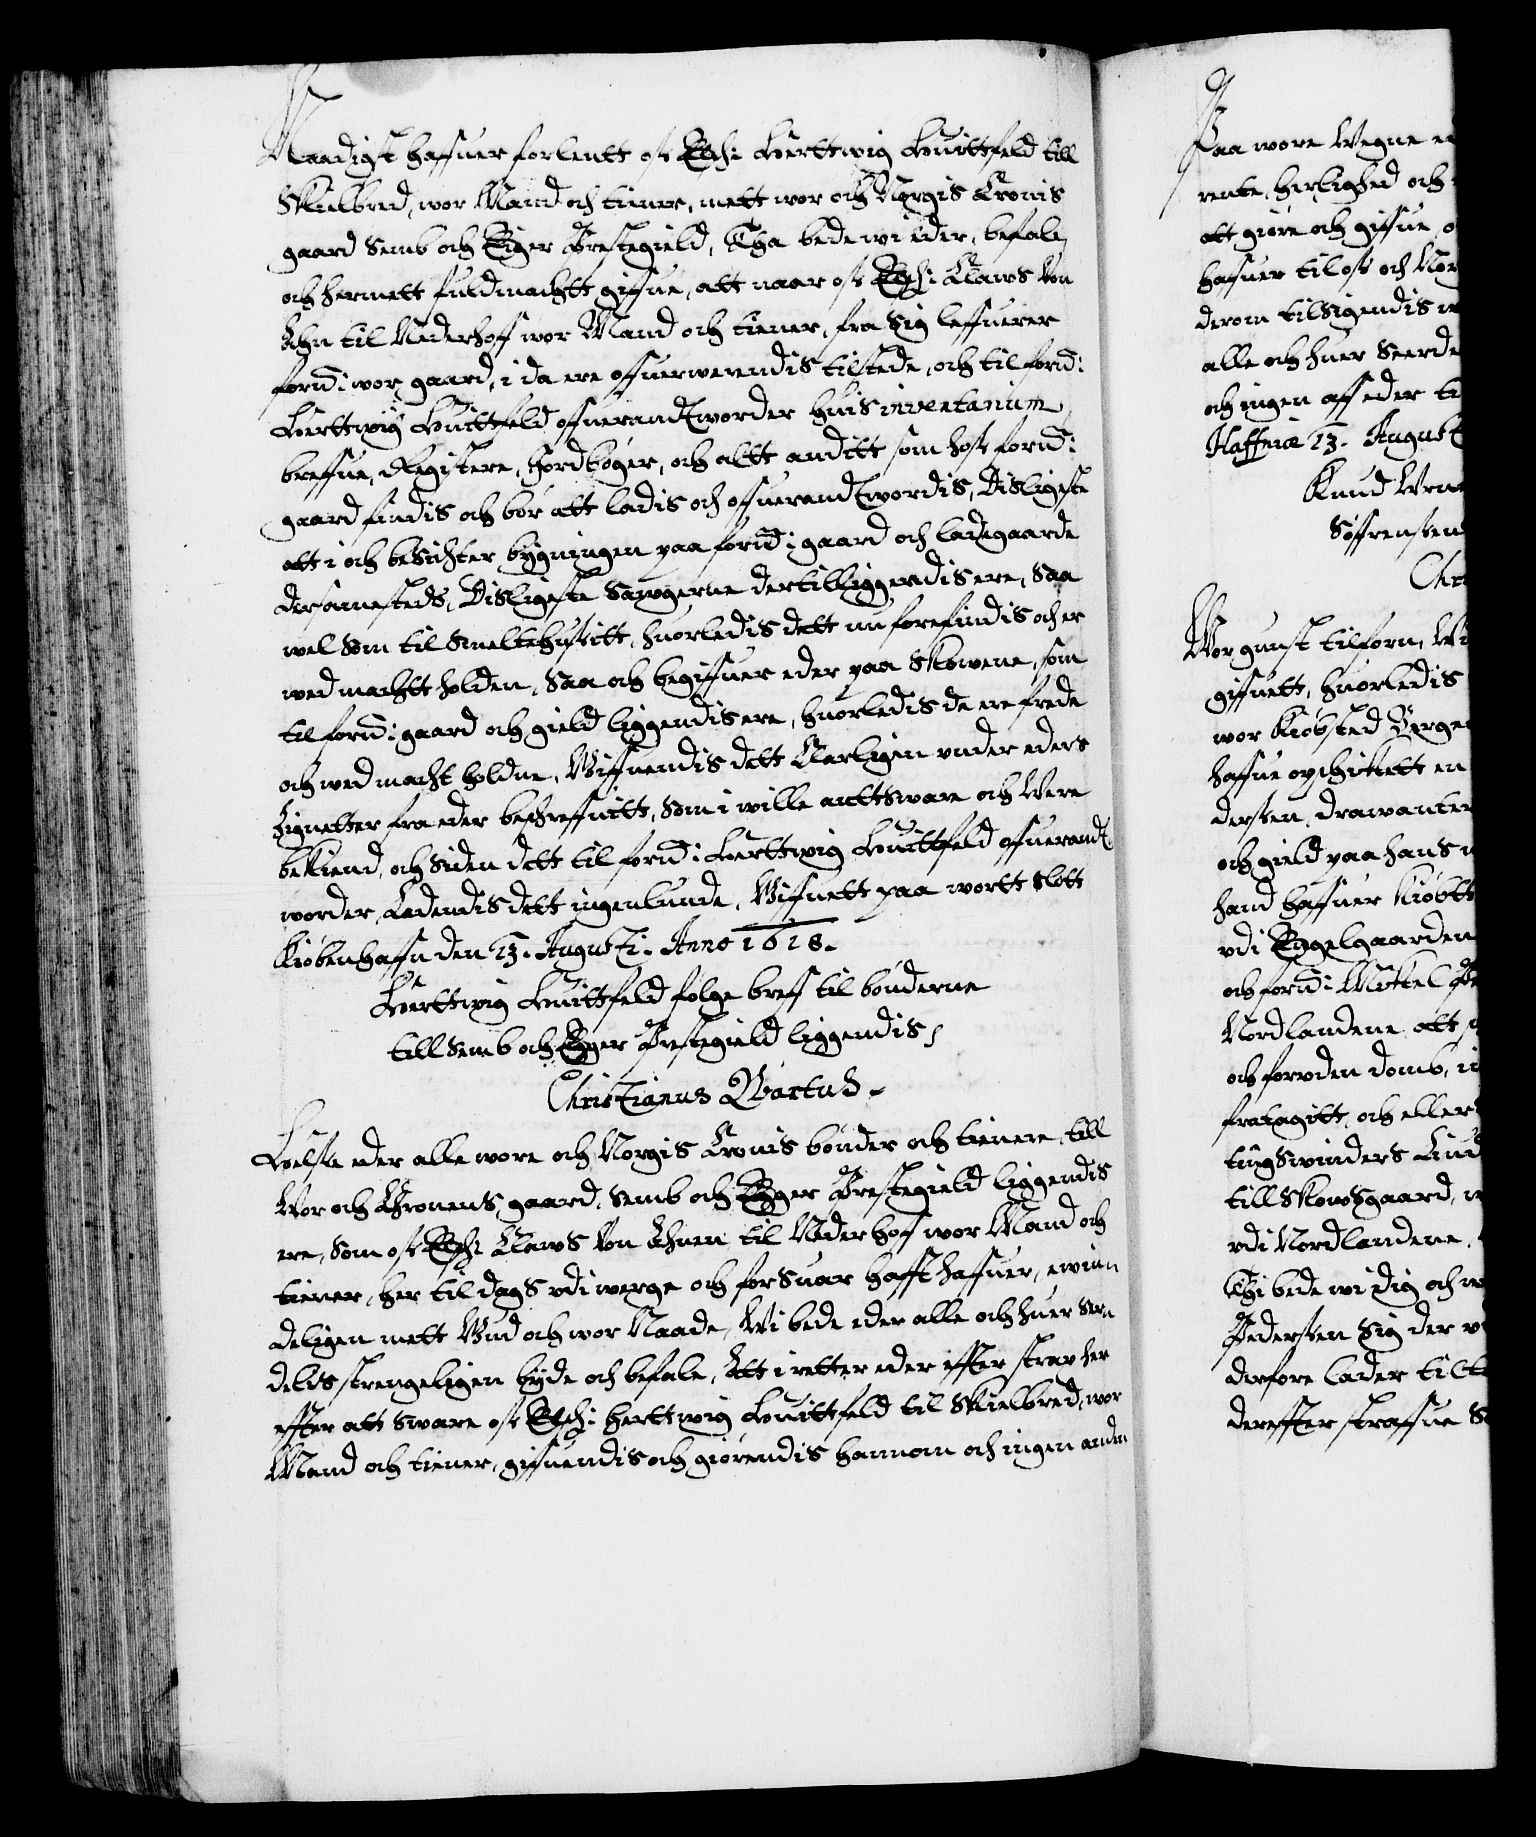 Naadigst haffuer forlentt os Elsk: Herttwig Huittfeld till
Skielbred, wor Mand och tiener, mett wor och Norgis Cronis
gaard Semb och Eiger Prestegield, Tha bede wi eder, befale
och hermett fuldmachtt giffue, att naar os Elsk: Claws Von
Ahn til Nederhoff wor Mand och tiener, fra sig leffuerer
forn: wor gaard, i da ere offuerwerendis tilstede, och til forn:
Herttwig Huittfeld offuerandtworder huis inventarium
breffue, Registere, Jordbøger, och altt anditt som hos forn:
gaard findis och bør att ladis och offuerandtwordis, Disligeste
att i och besichter bygningen paa forn: gaard och ladegaarde
dersamesteds, Disligeste Sawgerne dertilliggendis ere, Saa
wel som til Smeltehusitt, huorledis dett nu forefindis och er
wed machtt holden, Saa och begiffuer eder paa Skowene, som
til forn: gaard och gield liggendis ere, huorledis de ere frede
och wed macht holdne, Giffuendis dett klarligen vnder eders
Zignetter fra eder beschreffuitt, Som i wille anttsware och Were
bekiend, och siden dett til forn: Herttwig Huittfeld offuerandt
worder, Ladendis dett ingenlunde, Giffuett paa wortt Slott
Kiøbenhaffn den 13. Augusti. Anno 1618.
Herttwig Huittfeld følge breff til bønderne
till Semb och Eger Prestegield liggendis
Christianus Qvartus.
Helse eder alle wore och Norgis Cronis bønder och tienere, till
Wor och Cronens gaard, Semb och Eger Prestegield liggendis
ere, Som os Elsk: Claws Von Ahnen til Nederhoff wor Mand och
tiener, her til dags vdi werge och forsuar hafft haffuer, ewin
deligen mett Gud och wor Naade, Wi bede eder alle och huer Serr
delis strengeligen byde och befale, Att i retter eder effter strax her
effter att sware os Elsk: Herttwig Huittfeld til Skielbred, wor
Mand och tiener, giffuendis och giørendis hannom och ingen anden
Paa wore Wegne
rente, herlighed och
att giøre och giffue,
haffuer til os och
derom tilsigendis
alle och huer Seerde
och ingen aff eder
Haffniæ 13. August
Knud
Søffrensen
Wor gunst tilforn,
giffuett, huorledis
wor Kiøbsted Berge
haffue opschickett en
dersen, drawanter
och gield paa hans
hand haffuer kiøbtt
vdi Eggelgaarden
och forn: Mickel
Nordlandene att
och foruden domb,
fratagitt, och eller
tingswinders
till Skowsgaard,
vdi Nordlandene,
Thi bede wi dig och
Pedersen sig der
derfore lader
dereffter straffue